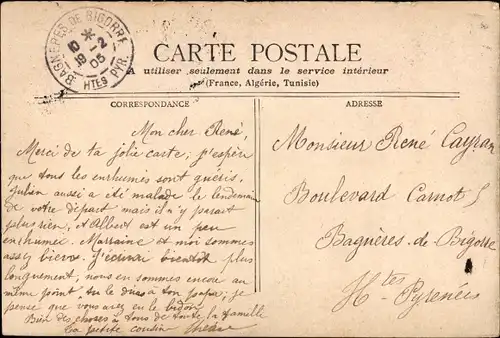 BAGNÈRES DE BIGORRE
10 *
19 -2
05
HTES PYR.
CARTE POSTALE
A utiliser seulement dans le service intérieur
(France, Algérie, Tunisie)
CORRESPONDANCE
Mon cher René,
Merci de ta jolie carte; j'espère
que tous les enrhumés sont guéris,
Julien aussi a été malade le lendemain
de votre départ mais il n'y parait
plus rien, et Albert est un peu
enrhumé. Marraine et moi sommes
assez bien. J'écrirai bientôt plus
longuement, nous en sommes encore au
même point tu le diras à ton papa; je
pense que vous avez eu le bidon
Bien des choses à tous de toute la famille
La petite cousin
ADRESSE
Monsieur René Cayran
Boulevard Carnot 5
Bagnères de Bigorre
Htes Pyrénées